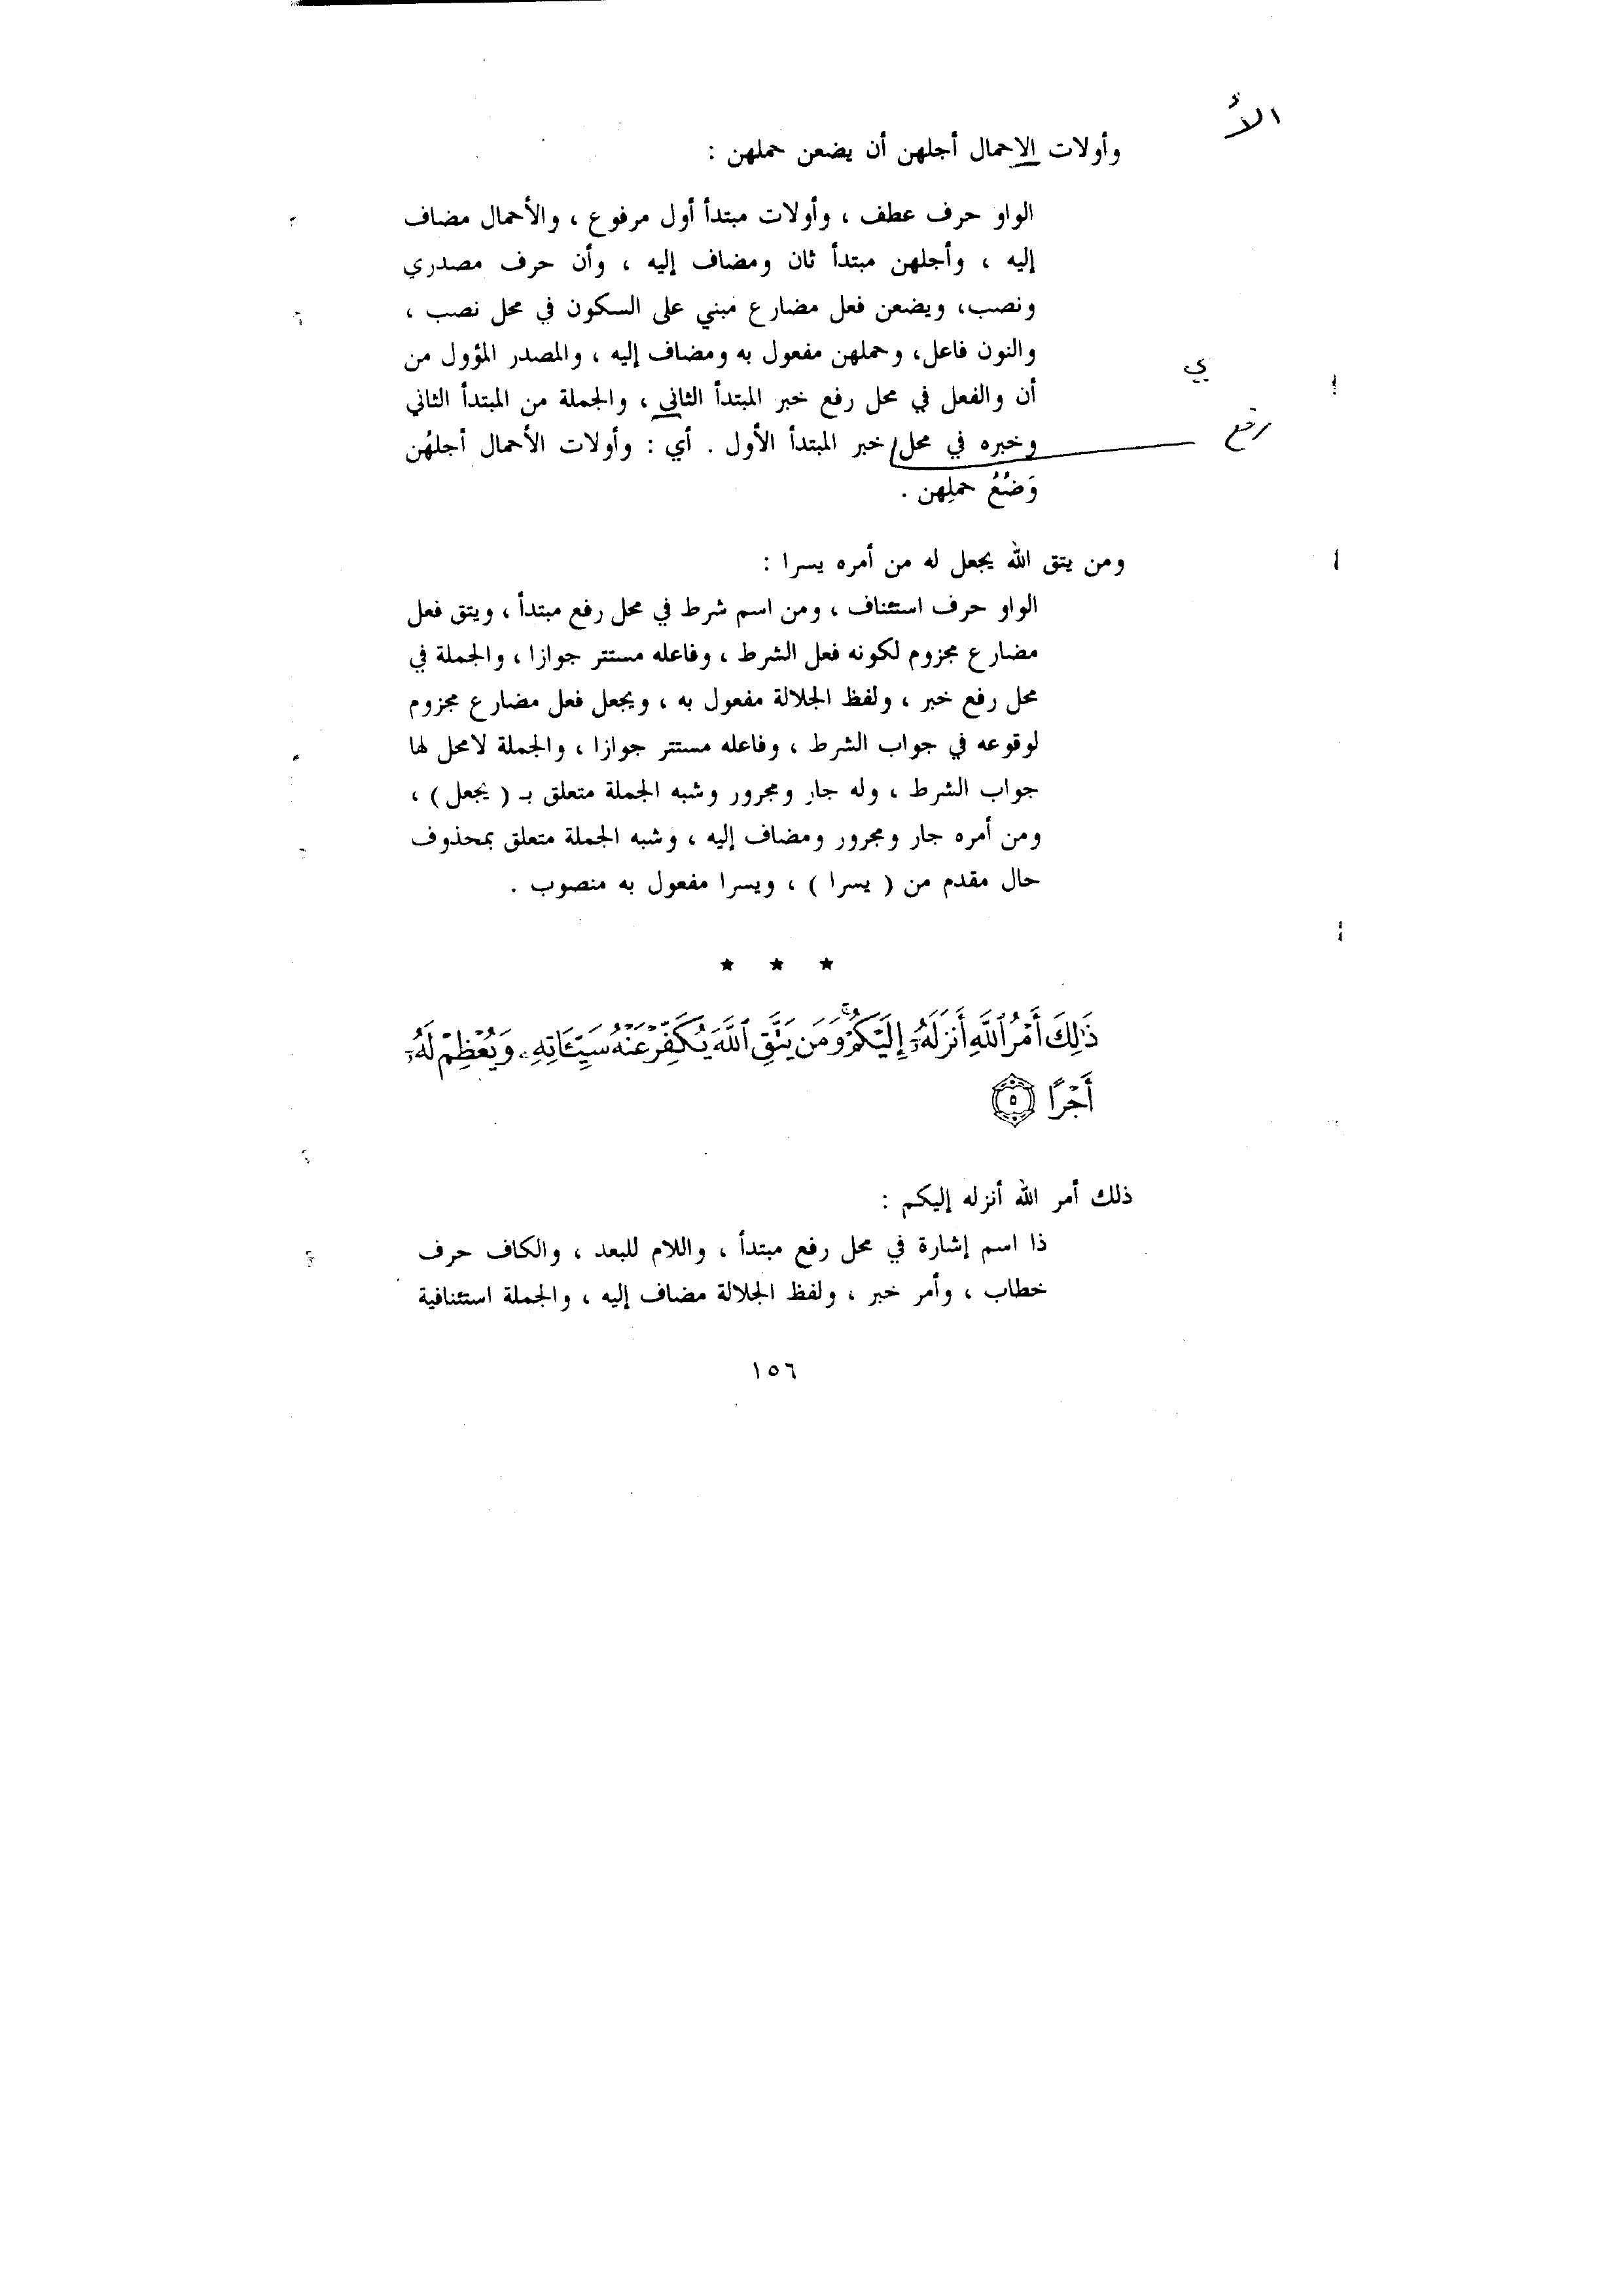 الأ
وأولات الاحمال أجلهن أن يضعن حملهن :
الواو حرف عطف ، وأولات مبتدأ أول مرفوع ، والأحمال مضاف
إليه ، وأجلهن مبتدأ ثان ومضاف إليه ، وأن حرف مصدري
ونصب، ويضعن فعل مضارع مبني على السكون في محل نصب ،
والنون فاعل، وحملهن مفعول به ومضاف إليه ، والمصدر المؤول من
ي
أن والفعل في محل رفع خبر المبتدأ الثانى ، والجملة من المبتدأ الثاني
رفع
وخبره في محل خبر المبتدأ الأول . أي : وأولات الأحمال أجلهُن
وَضْعُ حملِهن .
ومن يتق الله يجعل له من أمره يسرا :
الواو حرف استئناف ، ومن اسم شرط في محل رفع مبتدأ ، ويتق فعل
مضارع مجزوم لكونه فعل الشرط ، وفاعله مستتر جوازا ، والجملة في
محل رفع خبر ، ولفظ الجلالة مفعول به ، ويجعل فعل مضارع مجزوم
لوقوعه في جواب الشرط ، وفاعله مستتر جوازا ، والجملة لامحل لها
جواب الشرط ، وله جار ومجرور وشبه الجملة متعلق بـ ( يجعل ) ،
ومن أمره جار ومجرور ومضاف إليه ، وشبه الجملة متعلق بمحذوف
حال مقدم من ( يسرا ) ، ويسرا مفعول به منصوب .
★ ★ ★
ذَٰلِكَ أَمْرُ ٱللَّهِ أَنزَلَهُۥٓ إِلَيْكُمْ ۚ وَمَن يَتَّقِ ٱللَّهَ يُكَفِّرْ عَنْهُ سَيِّـَٔاتِهِۦ وَيُعْظِمْ لَهُۥٓ
أَجْرًا ٥
ذلك أمر الله أنزله إليكم :
ذا اسم إشارة في محل رفع مبتدأ ، واللام للبعد ، والكاف حرف
خطاب ، وأمر خبر ، ولفظ الجلالة مضاف إليه ، والجملة استئنافية
١٥٦